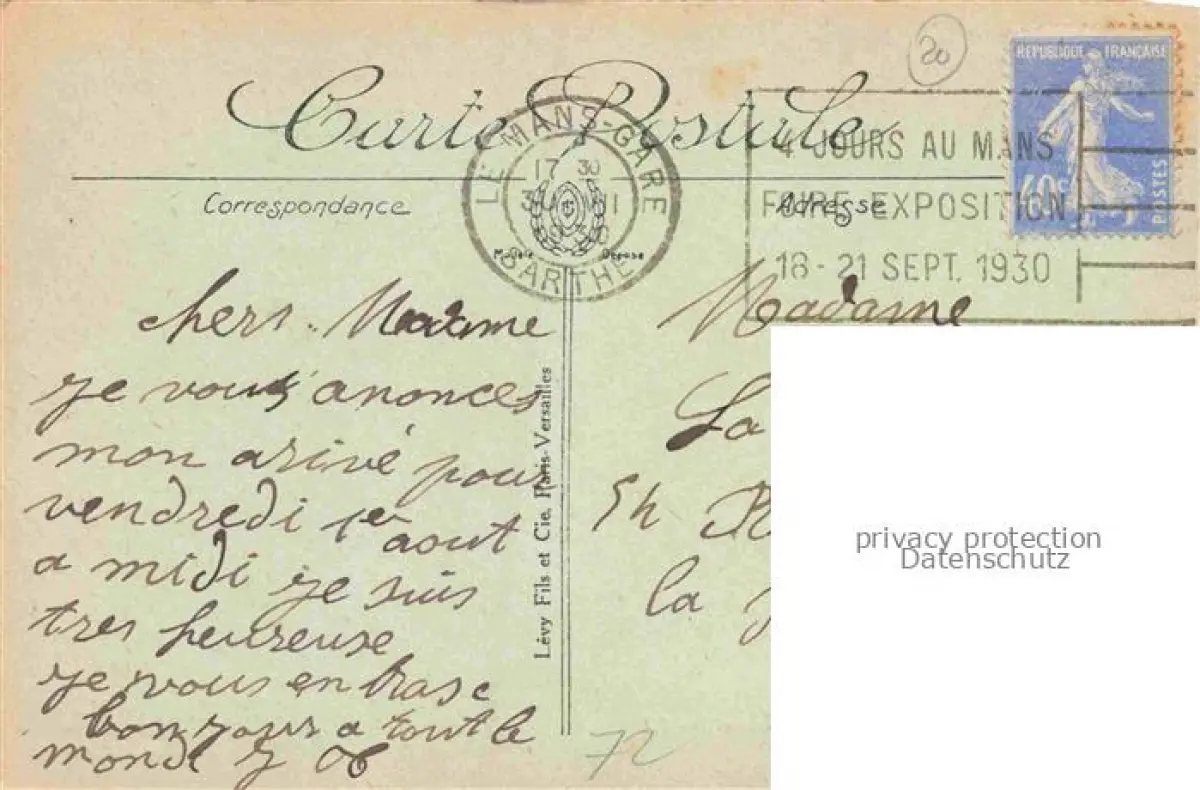 20
RÉPUBLIQUE FRANÇAISE
40c
POSTES
Carte Postale
LE MANS-GARE
17 30
SARTHE
4 JOURS AU MANS
FOIRE-EXPOSITION
18-21 SEPT. 1930
Correspondance
Adresse
Modèle Déposé
chers. Madame
je vous anonces
mon arivé pour
vendredi 1er aout
a midi je suis
tres heureuse
je vous enbrase
bonjours a tout le
monde
Lévy Fils et Cie, Paris-Versailles
Madame
La
la
72
privacy protection
Datenschutz